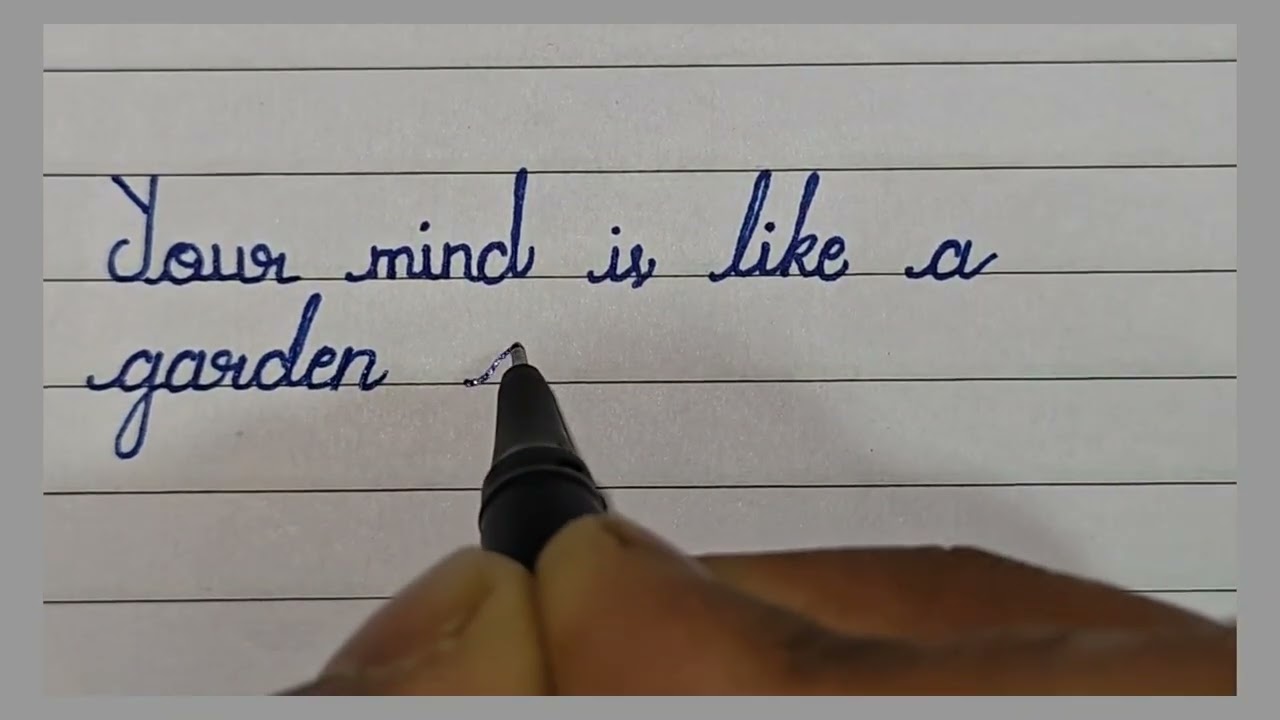 Your mind is like a
garden